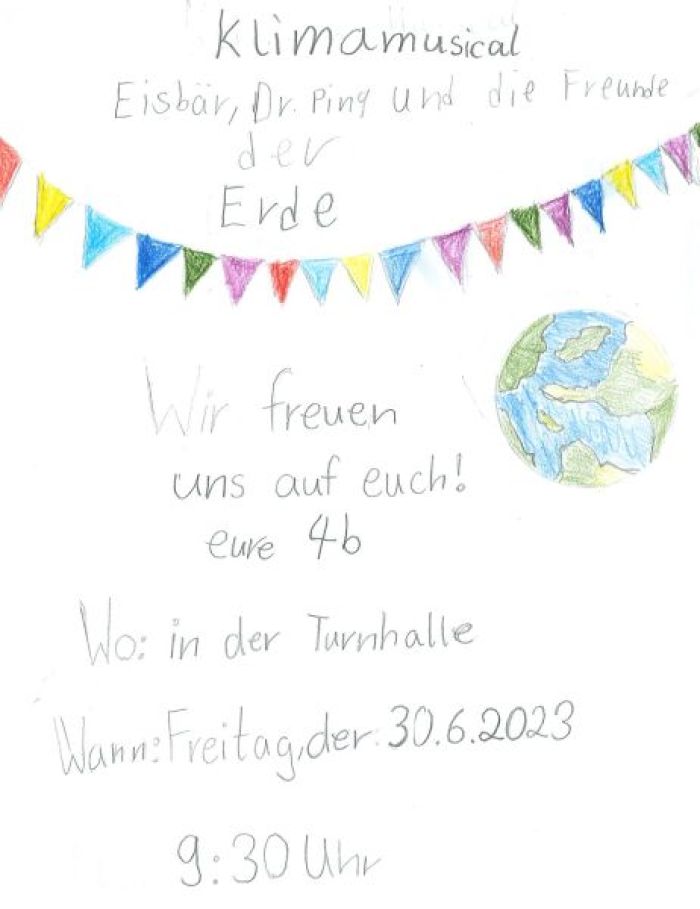 Klimamusical
Eisbär, Dr. Ping und die Freunde
der
Erde
Wir freuen
uns auf euch!
eure 4b
Wo: in der Turnhalle
Wann: Freitag, der 30.6.2023
9:30 Uhr